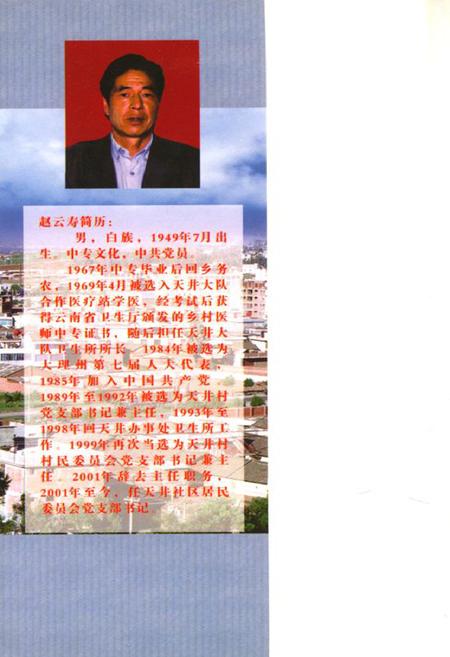 赵云寿简历：
男，白族，1949年7月出
生。中专文化，中共党员。
1967年中专毕业后回乡务
农，1969年4月被选入天井大队
合作医疗站学医，经考试后获
得云南省卫生厅颁发的乡村医
师中专证书，随后担任天井大
队卫生所所长，1984年被选为
大理州第七届人大代表，
1985年加入中国共产党，
1989年至1992年被选为天井村
党支部书记兼主任，1993年至
1998年回天井办事处卫生所工
作。1999年再次当选为天井村
村民委员会党支部书记兼主
任。2001年辞去主任职务，
2001年至今，任天井社区居民
委员会党支部书记。